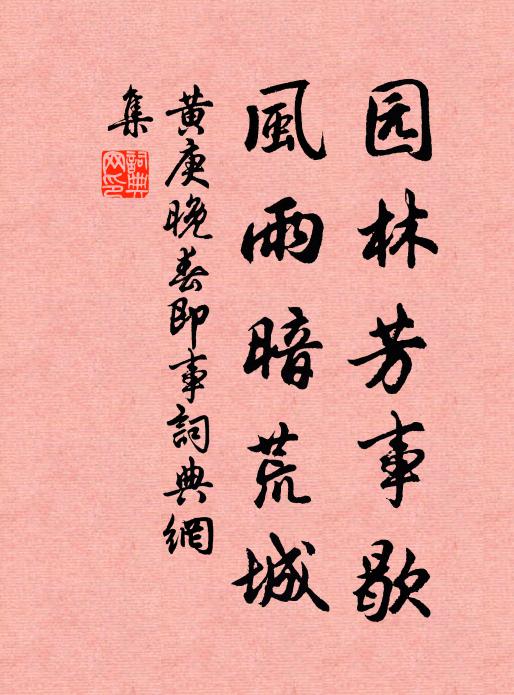 园林芳事歇
風雨暗荒城
黄庚晚春即事詞典網
集
詞典
网印